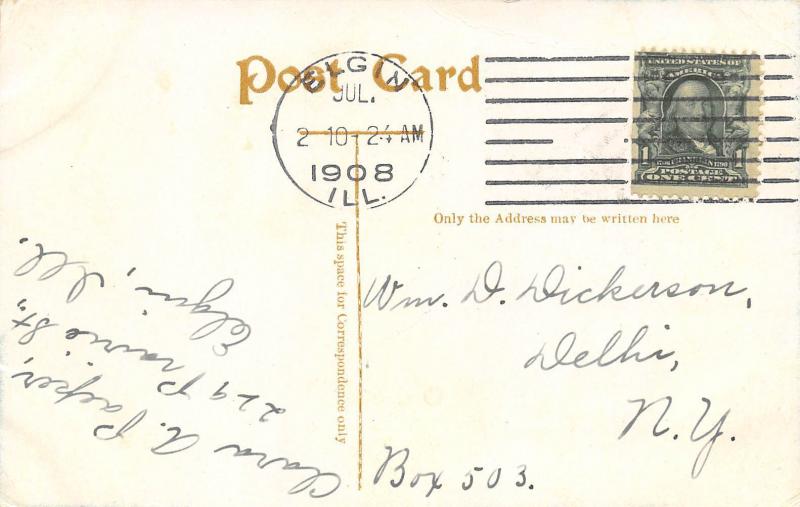 Post Card
ELGIN
JUL.
2 10-24 AM
1908
ILL.
UNITED STATES OF
AMERICA
1 1
POSTAGE
ONE CENT
Only the Address may be written here
This space for Correspondence only
Wm. D. Dickerson,
Delhi,
N.Y.
Box 503.
Clara A.
229 Prairie St.,
Elgin, Ill.